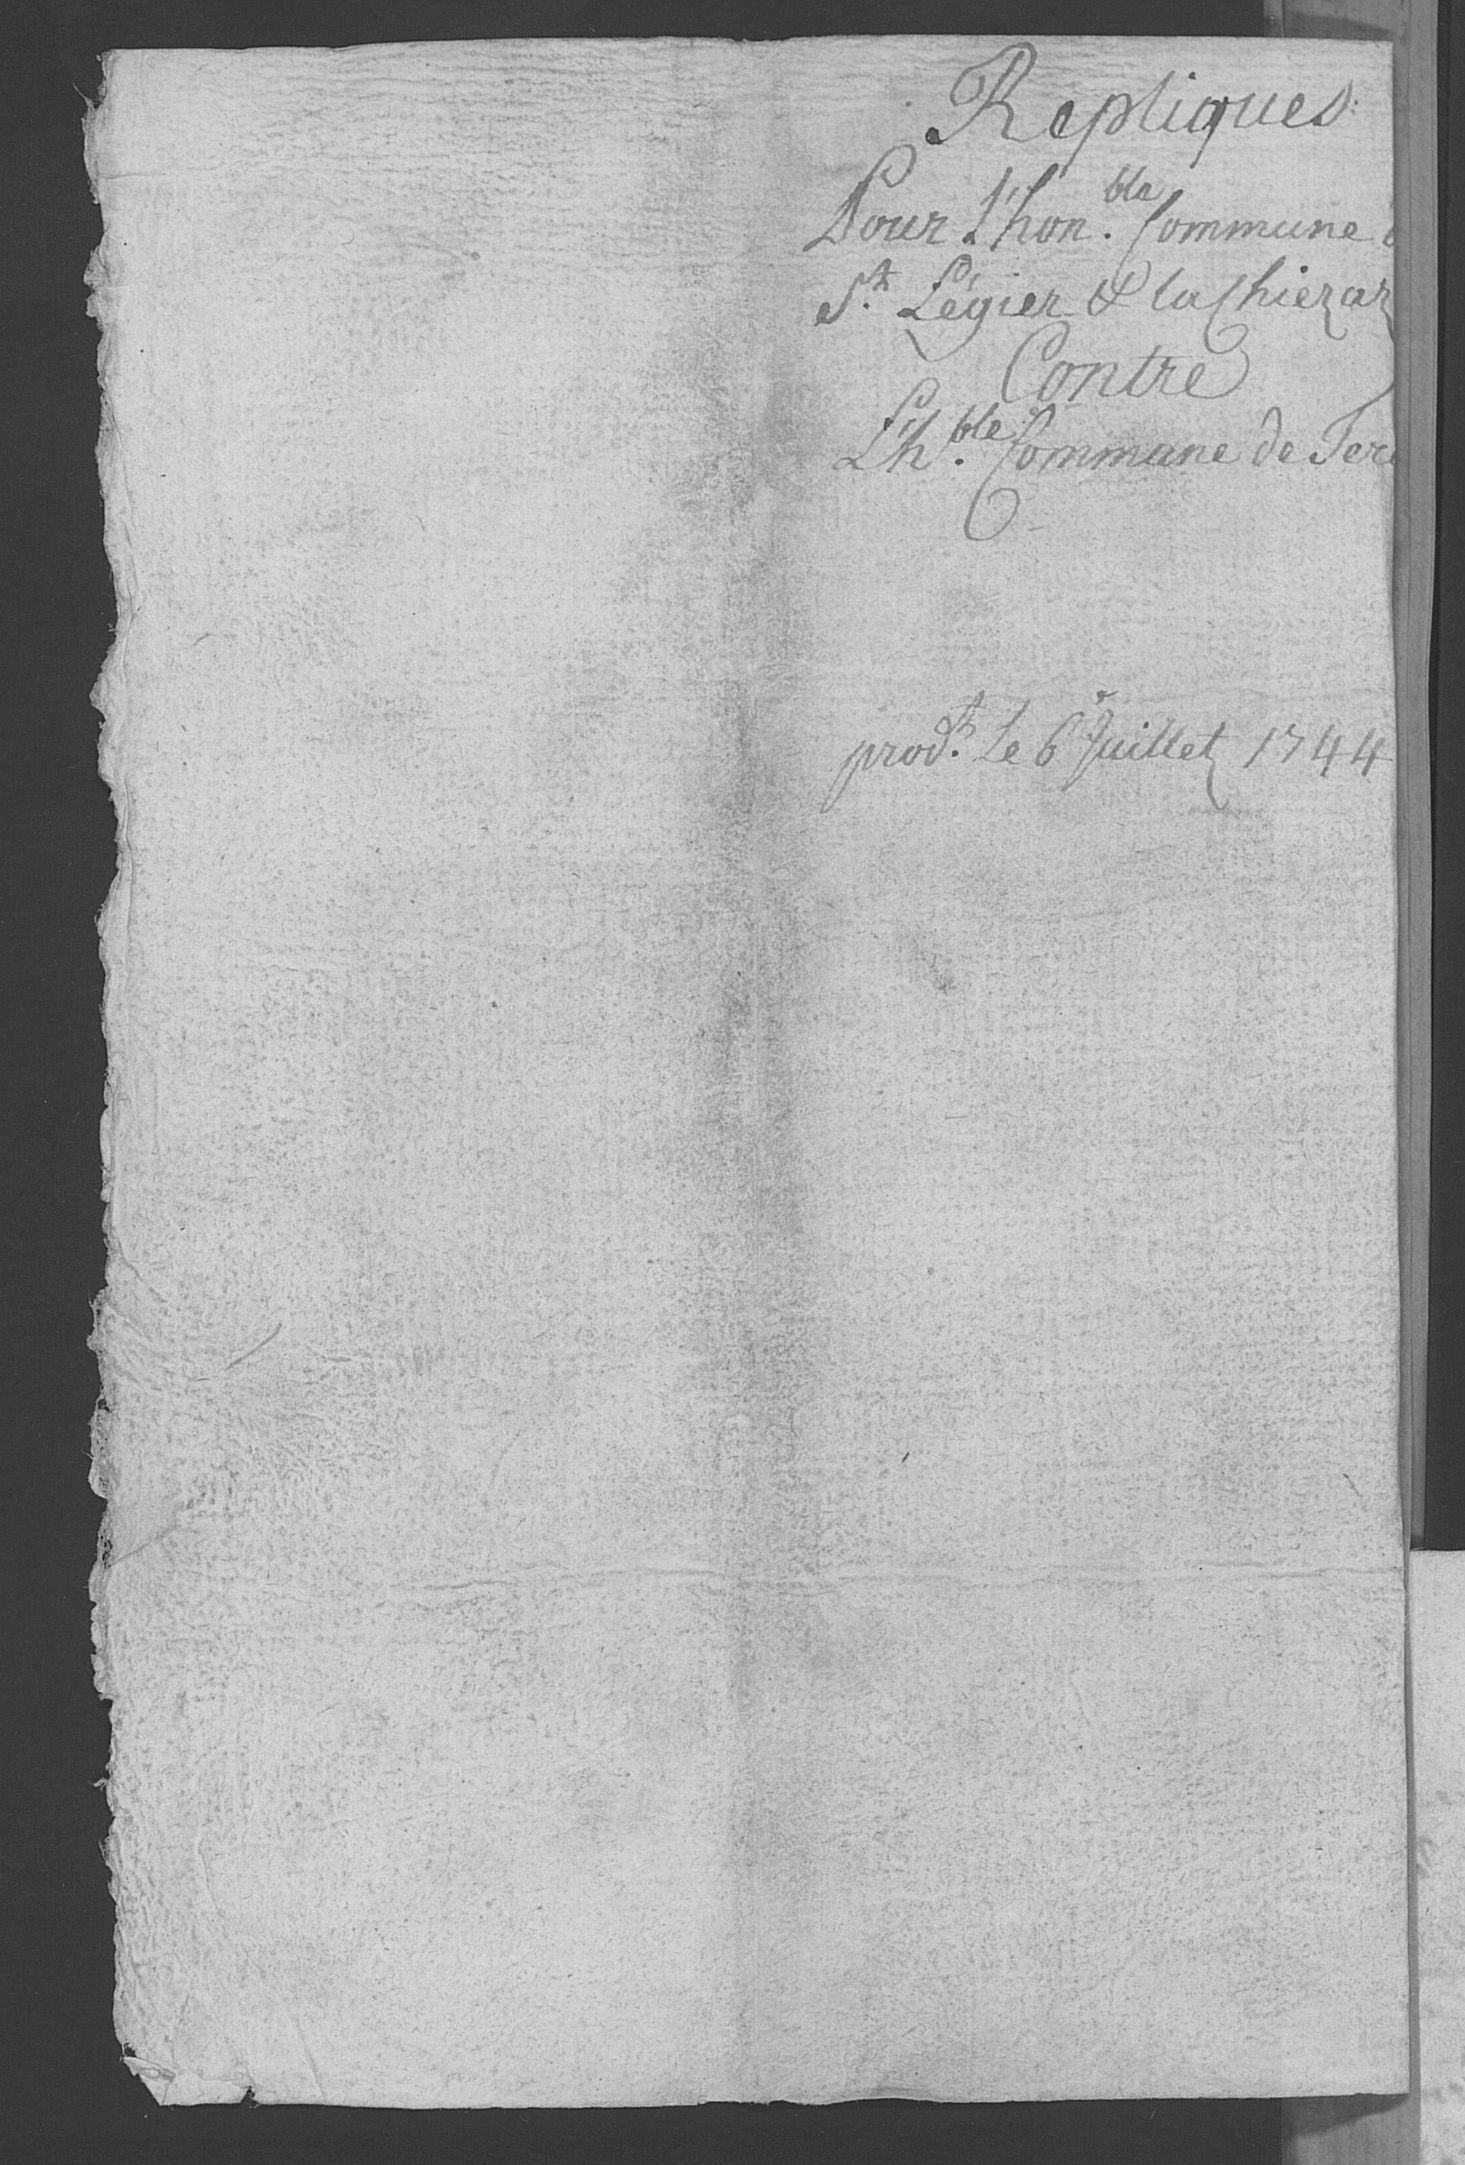 Repliques
Pour l'hon.ble Commune
St. Légier & la Chiezaz
Contre
L'h.ble Commune de
prod.t Le 6e Juillet 1744